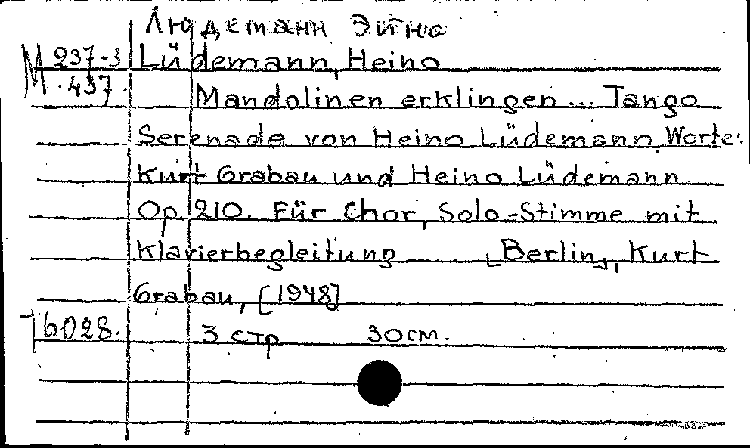 Людеманн Эйно
М 237-3 Lüdemann, Heino
437. Mandolinen erklingen... Tango
Serenade von Heino Lüdemann, Worte:
Kurt Grabau und Heino Lüdemann
Op. 210. Für Chor, Solo-Stimme mit
Klavierbegleitung [Berlin], Kurt
Grabau, [1948]
76028. 3 стр 30 см.